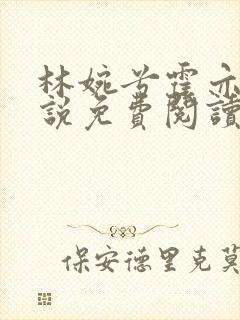 林婉兮霍亦
說免費閱讀
保安德里克莫